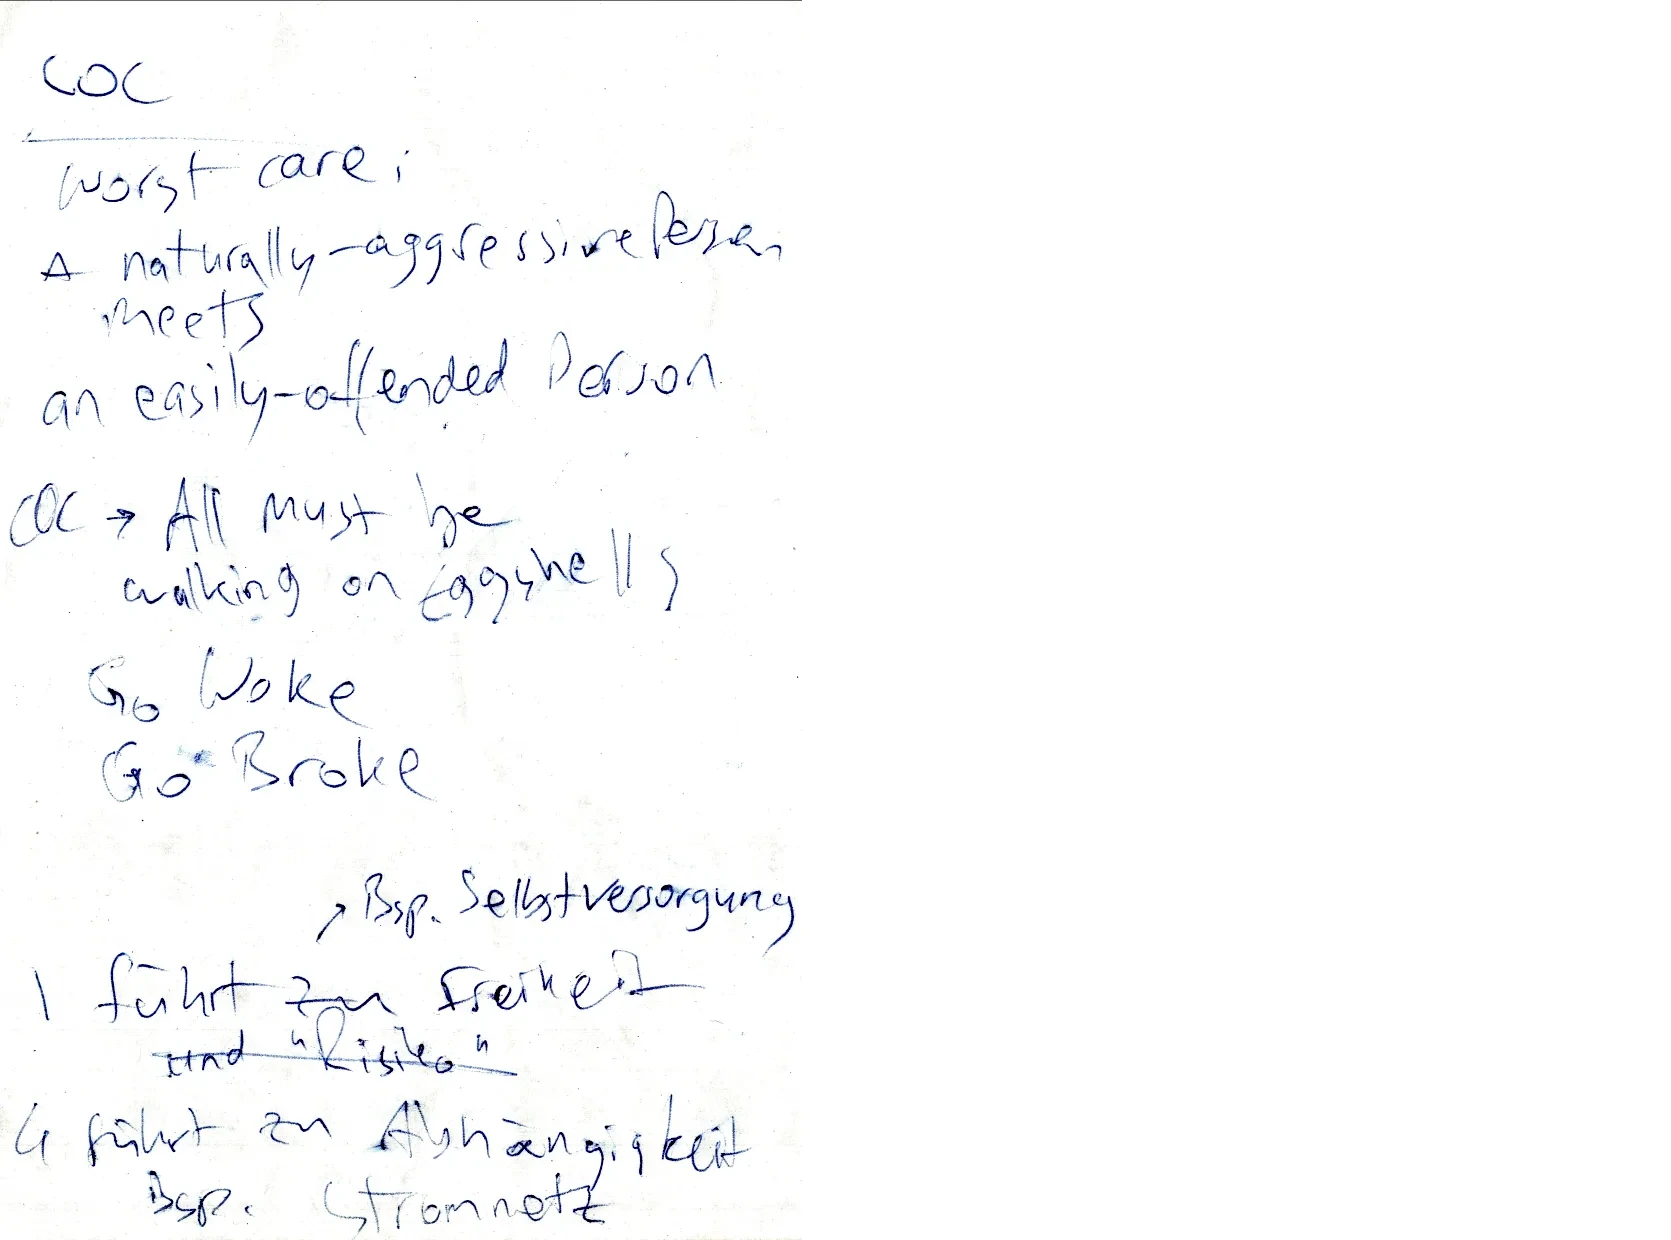 COC
worst care:
A naturally-aggressive Person
meets
an easily-offended Person
COC → All must be
walking on Eggshells
Go Woke
Go Broke
↗ Bsp. Selbstversorgung
1 führt zu Freiheit
und "Risiko"
4 führt zu Abhängigkeit
Bsp. Stromnetz